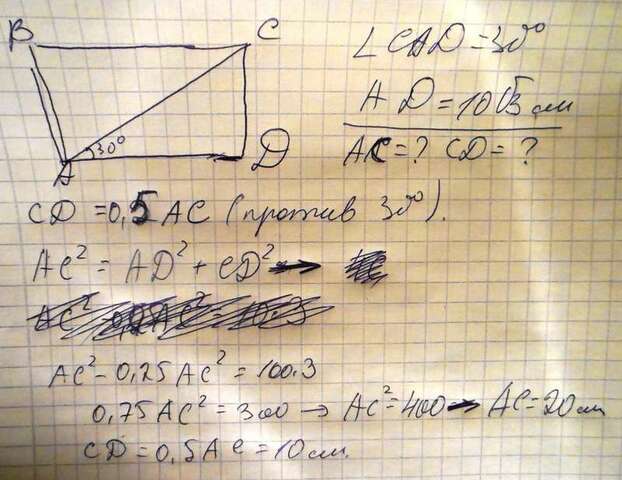 B C
∠CAD=30°
AD=10√3 см
AC=? CD=?
30°
A D
CD=0,5AC (против 30°).
AC²=AD²+CD²
AC²-0,25AC²=100·3
0,75AC²=300→AC²=400→AC=20см
CD=0,5AC=10см.